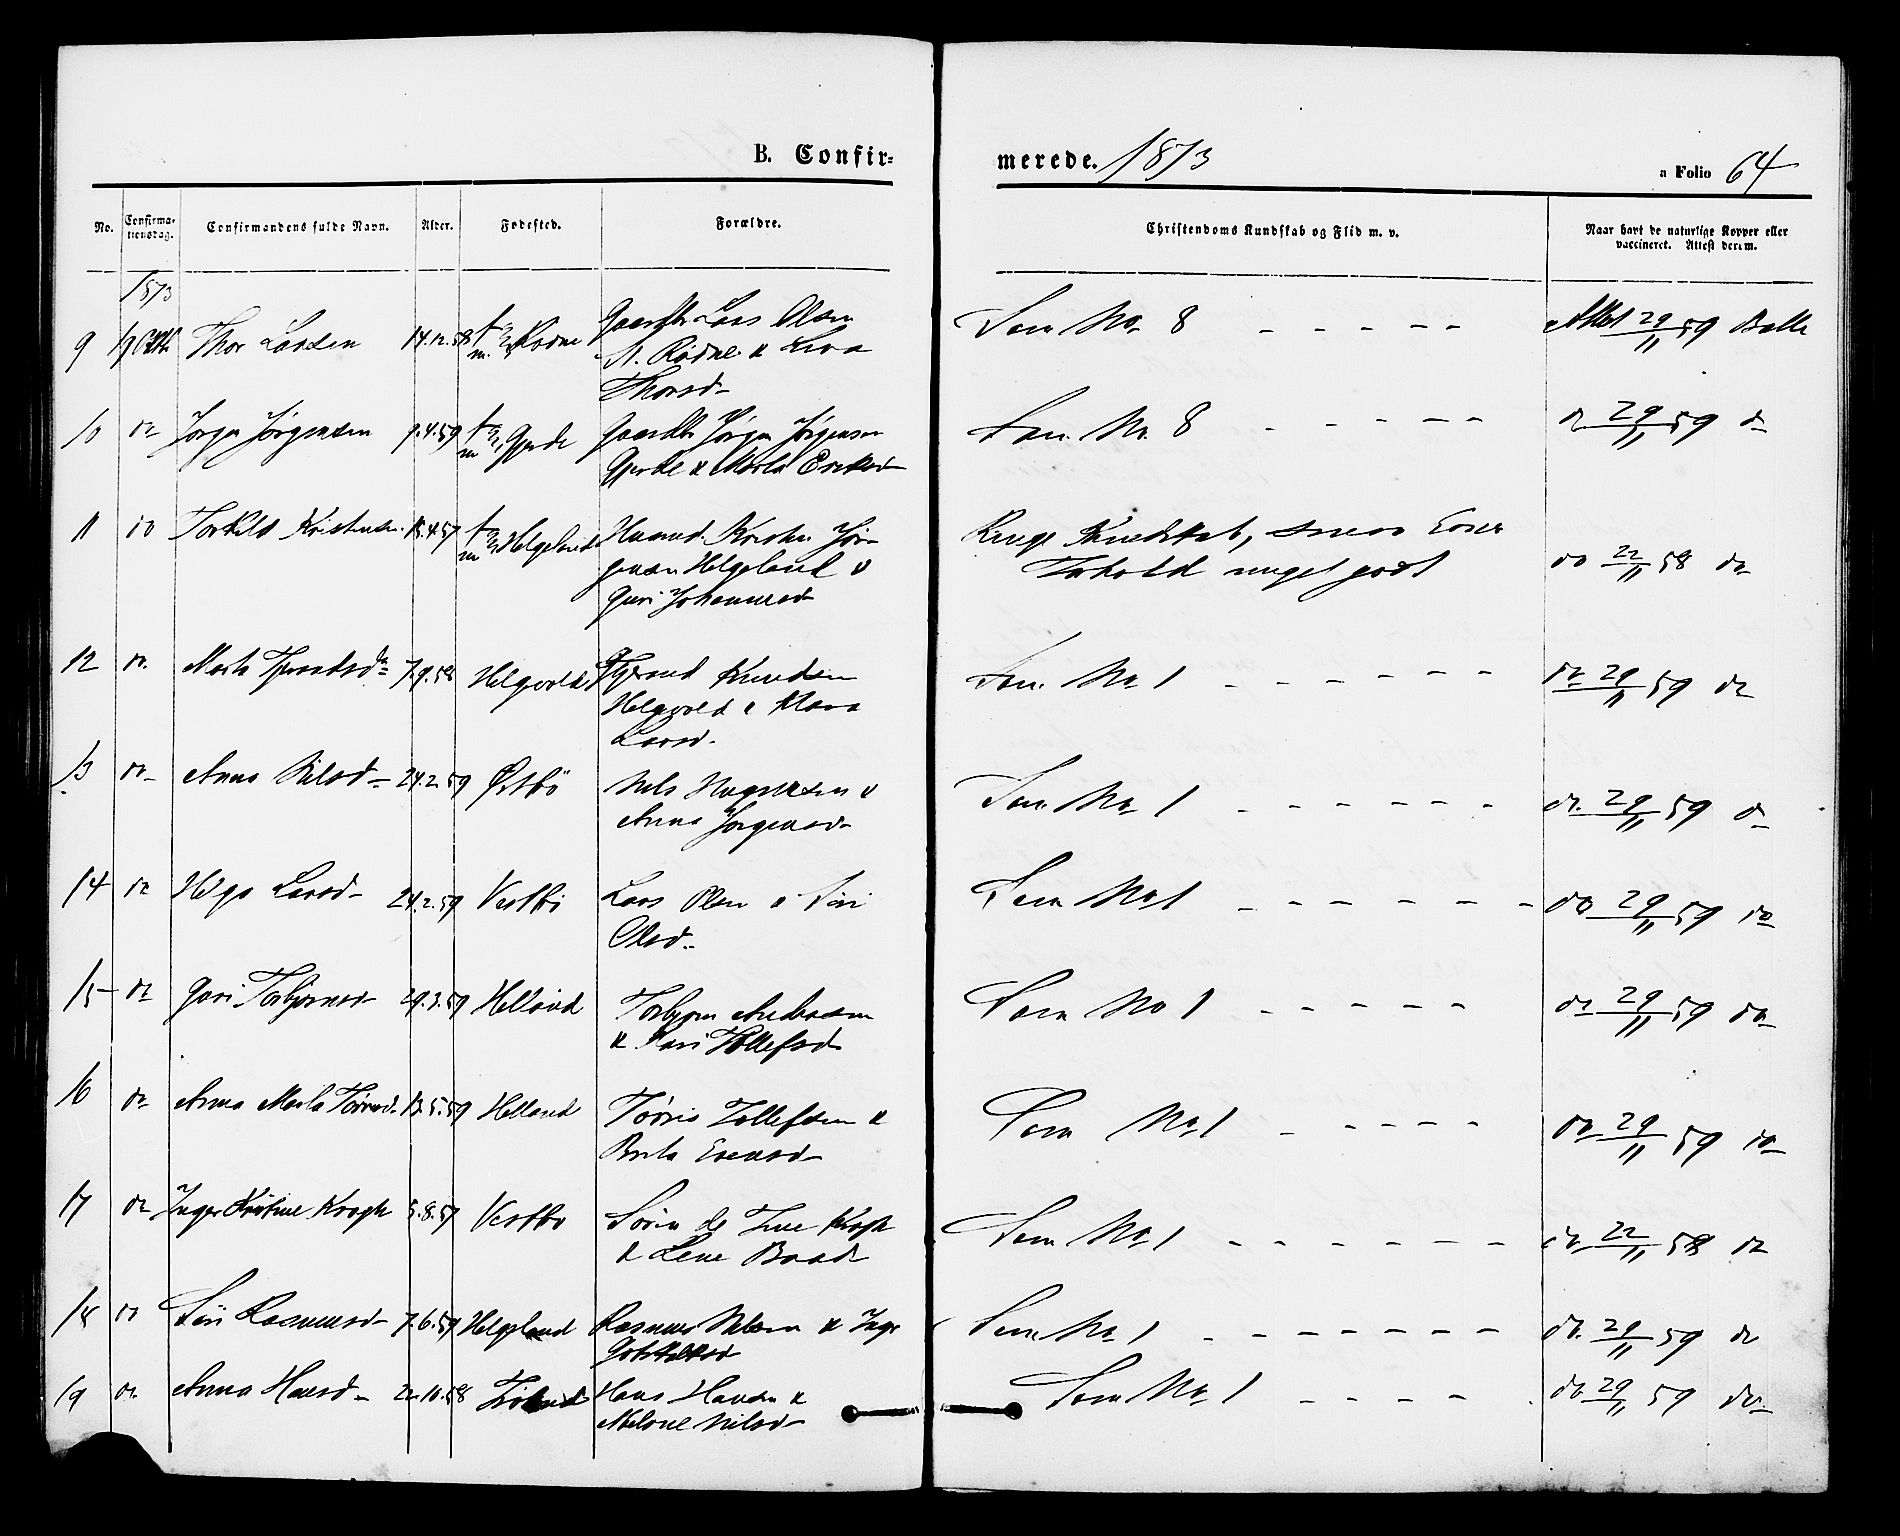 B. Confir-
merede. 1873
a Folio 64
No.
Confirma-
tionsdag.
Confirmandens fulde Navn.
Alder.
Fødested.
Forældre.
Christendoms Kundskab og Flid m. v.
Naar havt de naturlige Kopper eller
vaccineret. Attest derom.
1873
9 Thor Larsen 14.12.58 Rødne Lars Olsen
Rødne & Liva
Thorsd
Som No 8 - - - - - Attest 29/11 59
10 do Jørgen Jørgensen 9.4.59 Gjerde Jørgen Jørgensen
Gjerde & Marta
Som No 8 - - - - - do 29/11 59 do
11 do Torkild Kristensen 15.4.57 Helgeland Husmd. Kristen Jør-
gensen Helgeland &
Guri Johannesd
Kundskab,
meget godt
do 22/11 58 do
12 do Marta 7.9.58 Helgevold Knudsen
Helgevold &
Larsd.
Som No 1 - - - - - - do 29/11 59 do
13 do Anna Nilsd 24.2.59 Østbø Nils &
Anna Jørgensd
Som No 1 - - - - - - do 29/11 59 do
14 do Helga Larsd 24.2.59 Vestbø Lars Olsen & Siri
Olsd.
Som No 1 - - - - - - - do 29/11 59 do
15 do Guri Torbjørnsd 29.3.59 Helland Torbjørn Andersen
& Kari Tollefsd
Som No 1 - - - - - do 29/11 59 do
16 do Anna Marta Tørresd 13.5.59 Helland Tørris Tollefsen &
Brita Evensd
Som No 1 - - - - - do 29/11 59 do
17 do Inger Kristine Krogh 5.8.57 Vestbø Søren Krogh
& Lene
Som No 1 - - - - - - do 22/11 58 do
18 do Siri Rasmusd 7.6.59 Helgeland Rasmus Nilsen & Inger
Som No 1 - - - - - - - do 29/11 59 do
19 do Anna Hansd 22.10.58 Hans Hansen &
Malene Nilsd
Som No 1 - - - - do 29/11 59 do